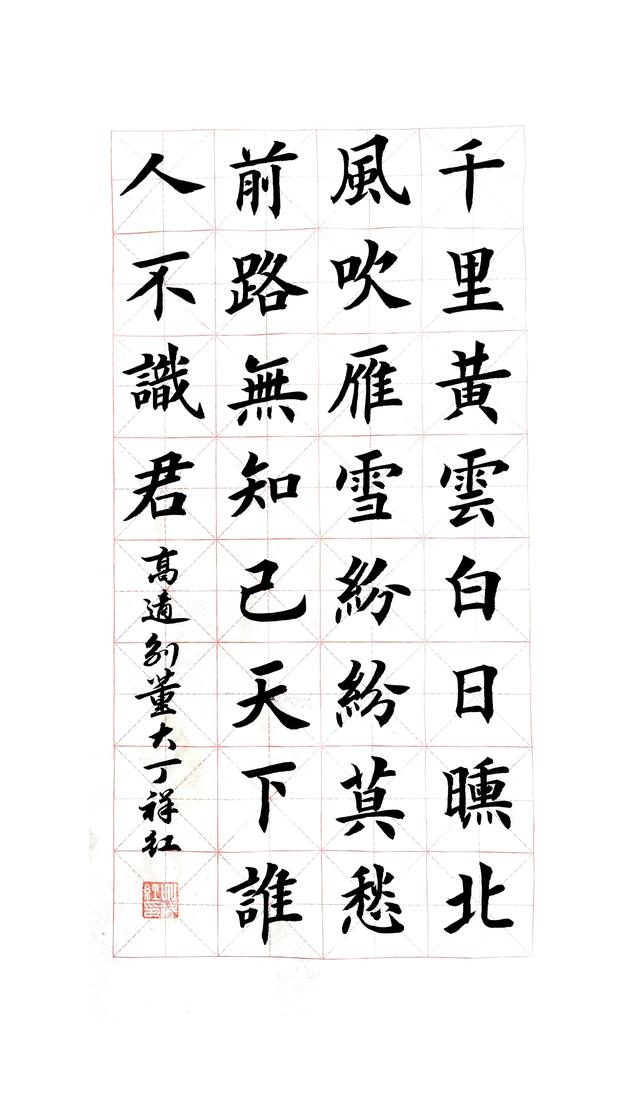 千里黃雲白日曛北
風吹雁雪紛紛莫愁
前路無知己天下誰
人不識君
高適别董大丁祥紅